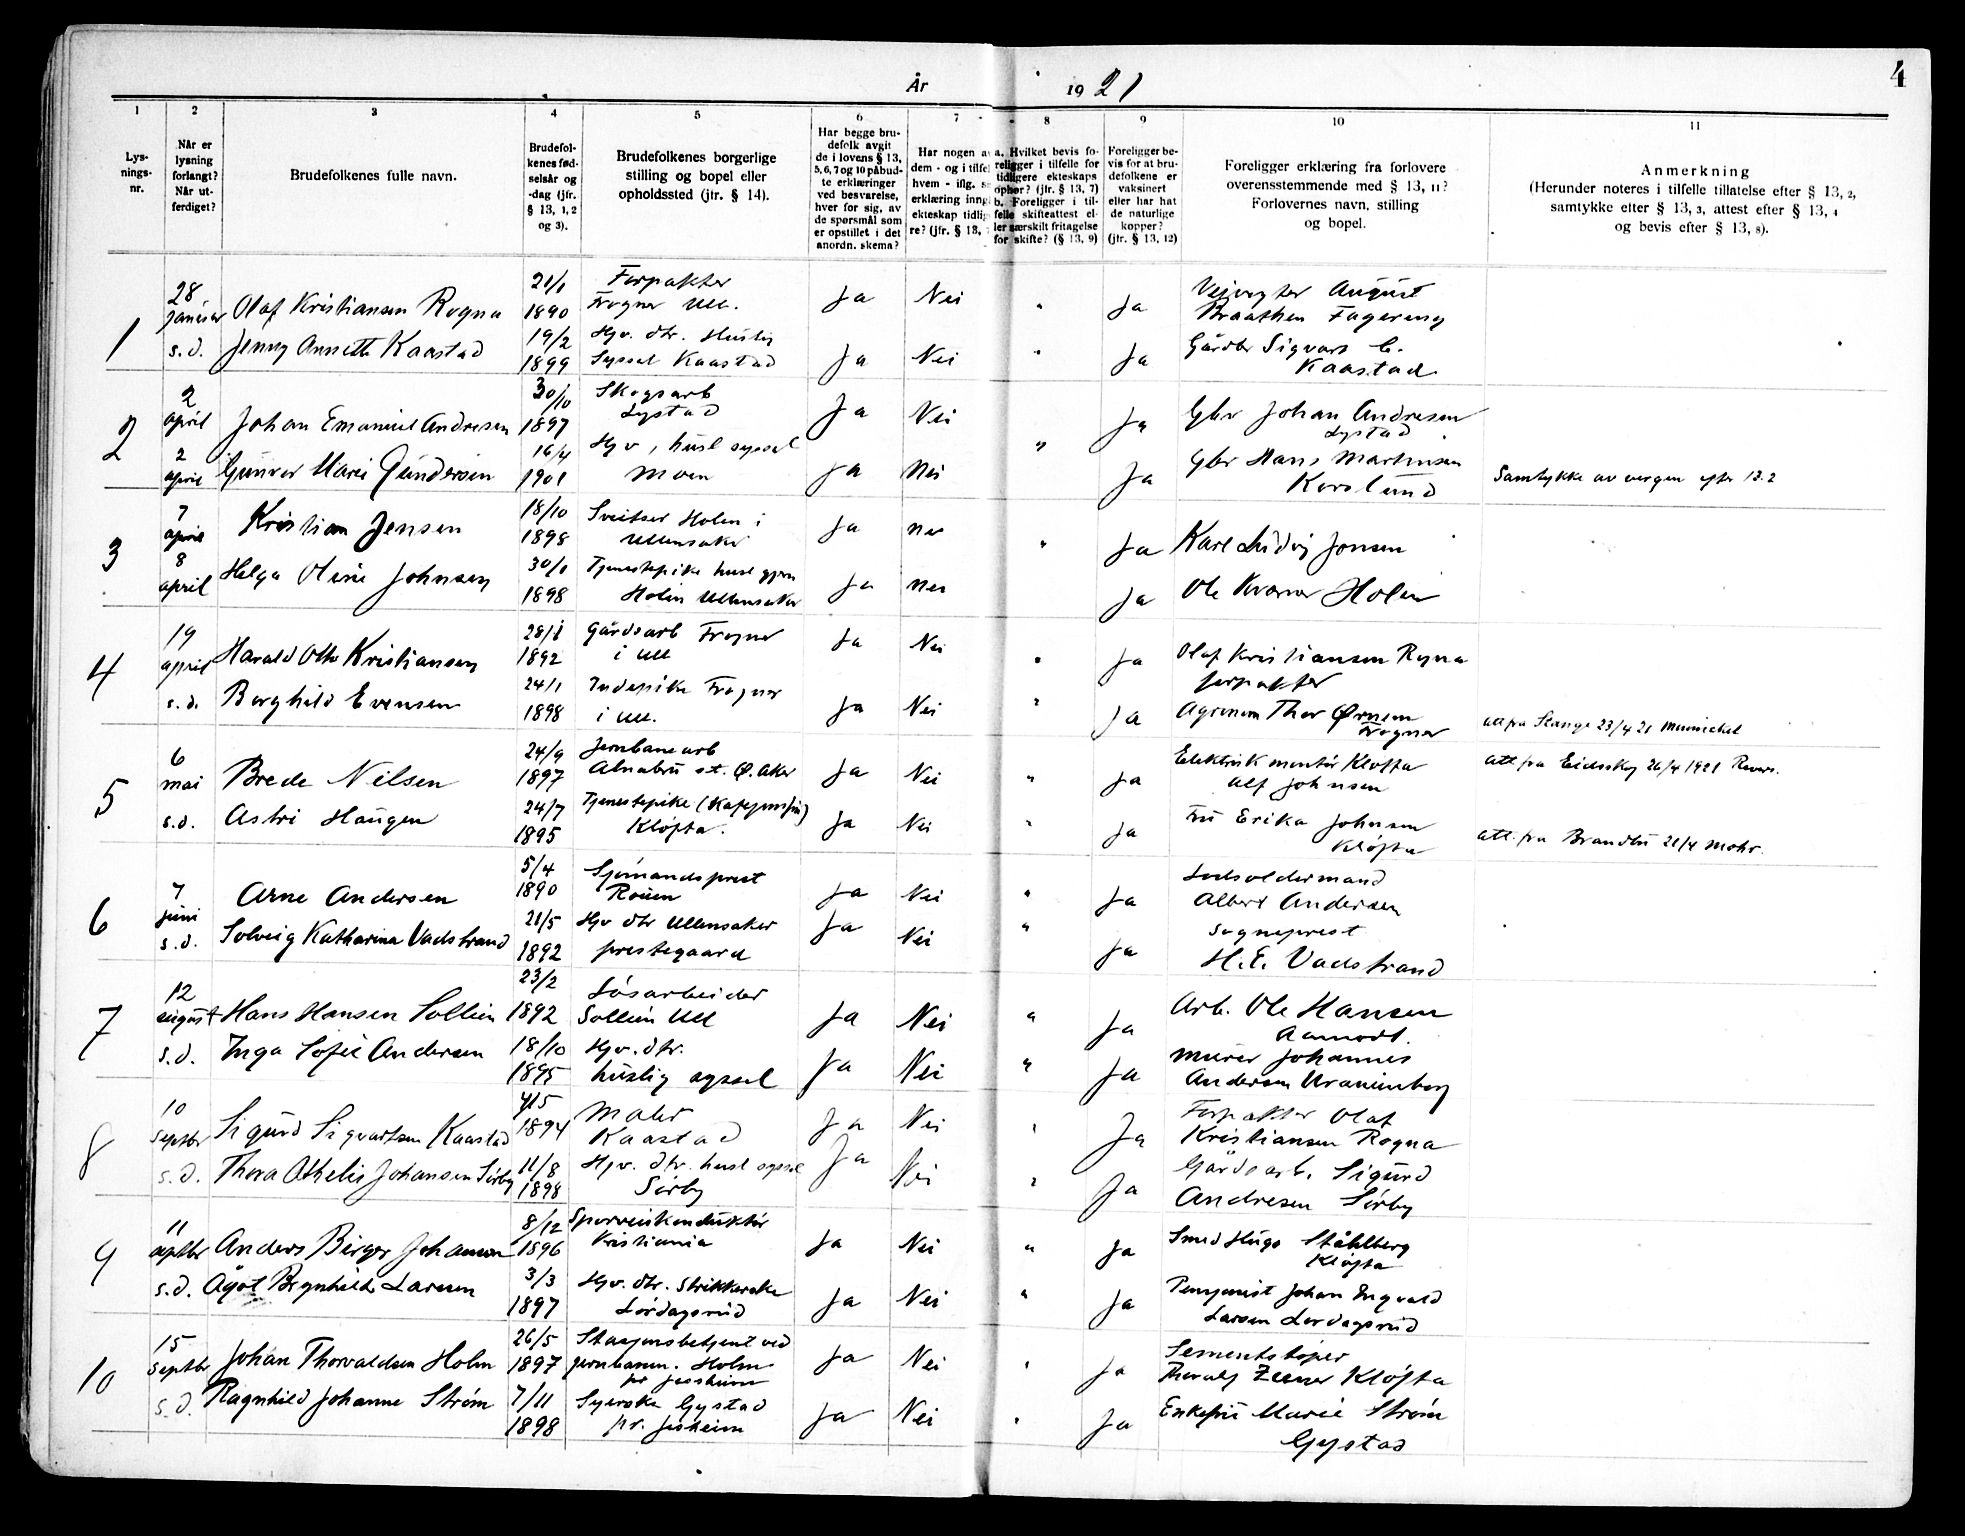 4
År 1921
1
Lys-
nings-
nr.
2
Når er
lysning
forlangt?
Når ut-
ferdiget?
3
Brudefolkenes fulle navn.
4
Brudefol-
kenes fød-
selsår og
-dag (jfr.
§ 13, 1, 2
og 3).
5
Brudefolkenes borgerlige
stilling og bopel eller
opholdssted (jfr. § 14).
6
Har begge bru-
defolk avgit
de i lovens § 13,
5, 6, 7 og 10 påbud-
te erklæringer
ved besvarelse,
hver for sig, av
de spørsmål som
er opstillet i det
anordn. skema?
7
Har nogen a
dem - og i tilfel
hvem - iflg.
erklæring inng
ekteskap tidlig
re? (jfr. § 13,
8
a. Hvilket bevis for
religger i tilfelle for
tidligere ekteskaps
ophør? (jfr. § 13, 7)
b. Foreligger i til-
felle skifteattest el-
ler særskilt fritagelse
for skifte? (§ 13, 9)
9
Foreligger be-
vis for at bru-
defolkene er
vaksinert
eller har hat
de naturlige
kopper?
(jfr. § 13, 12)
10
Foreligger erklæring fra forlovere
overensstemmende med § 13, 11?
Forlovernes navn, stilling
og bopel.
11
Anmerkning
(Herunder noteres i tilfelle tillatelse efter § 13, 2,
samtykke efter § 13, 3, attest efter § 13, 4
og bevis efter § 13, 8).
1
28 januar Olaf Kristiansen Rogna 21/1 1890 Forpakter Frogner Ull. Ja Nei " Ja Veivogter August Braathen Fagereng
s.d. Jenny Annette Kaastad 19/2 1899 Hjv. dtr. Huslig Syssel Kaastad Ja Nei " Ja Gårdbr Sigvart C. Kaastad
2
2 april Johan Emanuel Andresen 30/10 1897 Skogsarb Lystad Ja Nei " Ja Gbr Johan Andresen Lystad
2 april Gunvor Marie Gundersen 16/4 1901 Hjv, husl syssel Moen Ja Nei Ja Gbr Hans Martinsen Samtykke av vergen efter 13.2
3
7 april Kristian Jensen 18/10 1898 Sveitser Holen i Ullensaker Ja Nei " Ja Karl Ludvig Jonsen
8 april Helga Oline Johnsen 30/1 1898 Tjenestepike husl gjern Holen Ullensaker Ja Nei Ja Ole Holen
4
19 april Harald Otto Kristiansen 28/1 1892 Gårdsarb Frogner i Ull Ja Nei " Ja Olaf Kristiansen Rogna forpakter
s.d. Borghild Evensen 24/1 1898 Indepike Frogner i Ull. Ja Nei " Ja Agronom Thor Ørnem Frogner att fra Stange 23/4 21
5
6 mai Brede Nilsen 24/9 1897 Jernbanearb Alnabru st. Ø. Aker Ja Nei " Ja Elektrisk montør Kløfta Alf Johnsen att fra Eidsskog 26/4 1921
s.d. Astri Haugen 24/7 1895 Tjenestepike Kløfta. Ja Nei " Ja Fru Erika Johnsen Kløfta att. fra Brandbu 21/4 Mohr.
6
7 juni Arne Andersen 5/4 1890 Sjømandsprest Rouen Ja Nei " Ja Lodsoldermand Albert Andersen
s.d. Solveig Katharina Vadstrand 21/5 1892 Hjv dtr Ullensaker prestegaard Ja Nei " Ja Sogneprest H.E. Vadstrand
7
12 august Hans Hansen Sollien 23/2 1892 Løsarbeider Sollien Ull Ja Nei " Ja Arb. Ole Hansen Aamodt.
s.d. Inga Sofie Andersen 18/10 1895 Hjv. dtr. huslig syssel Ja Nei " Ja Murer Johannes Andersen Uranienborg
8
10 Septbr Sigurd Sigvartsen Kaastad 4/5 1894 Maler Kaastad Ja Nei " Ja Forpakter Olaf Kristiansen Rogna
s.d. Thora Athelie Johansen Sørby 11/8 1898 Hjv. dtr. husl syssel Sørby Ja Nei " Ja Gårdsarb. Sigurd Andresen Sørby
9
11 septbr Anders Birger Johansen 8/12 1896 Sporveiskonduktør Kristiania Ja Nei " Ja Smed Hugo Ståhlberg Kløfta
s.d. Ågot Bergnhilde Larsen 3/3 1897 Hjv. dtr. Strikkerske Lørdagsrud Ja Nei " Ja Pensjonist Johan Ingvald Larsen Lørdagsrud
10
15 septbr Johan Thorvaldsen Holm 26/5 1897 Stasjonsbetjent ved jernbanen. Holm pr Jessheim Ja Nei " Ja Sementstøper Thoralf Kløfta
s.d. Ragnhild Johanne Strøm 7/11 1898 Syerske Gystad pr. Jesheim Ja Nei " Ja Enkefru Marie Strøm Gystad